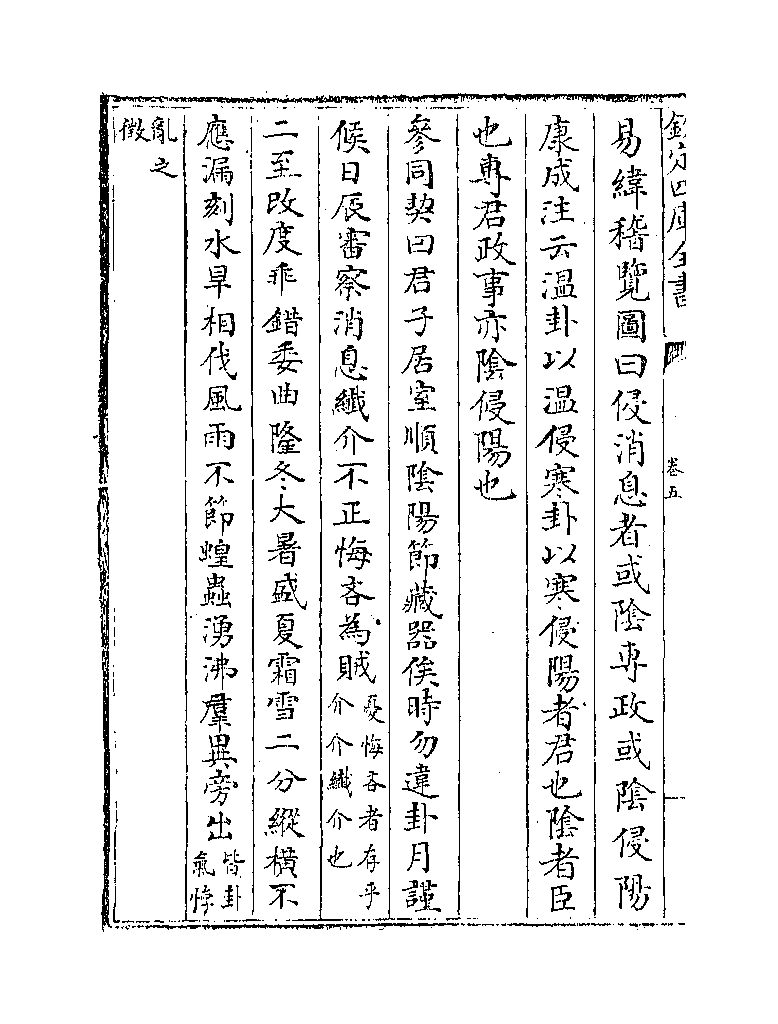 欽定四庫全書
卷五
易緯稽覽圖曰侵消息者或陰専政或陰侵陽
康成注云温卦以温侵寒卦以寒侵陽者君也陰者臣
也専君政事亦陰侵陽也
參同契曰君子居室順陰陽節藏器俟時勿違卦月謹
候日辰審察消息纎介不正悔吝為賊憂悔吝者存乎
介介纎介也
二至改度乖錯委曲隆冬大暑盛夏霜雪二分縱橫不
應漏刻水旱相伐風雨不節蝗蟲湧沸羣異旁出皆卦
氣悖
亂之
徵